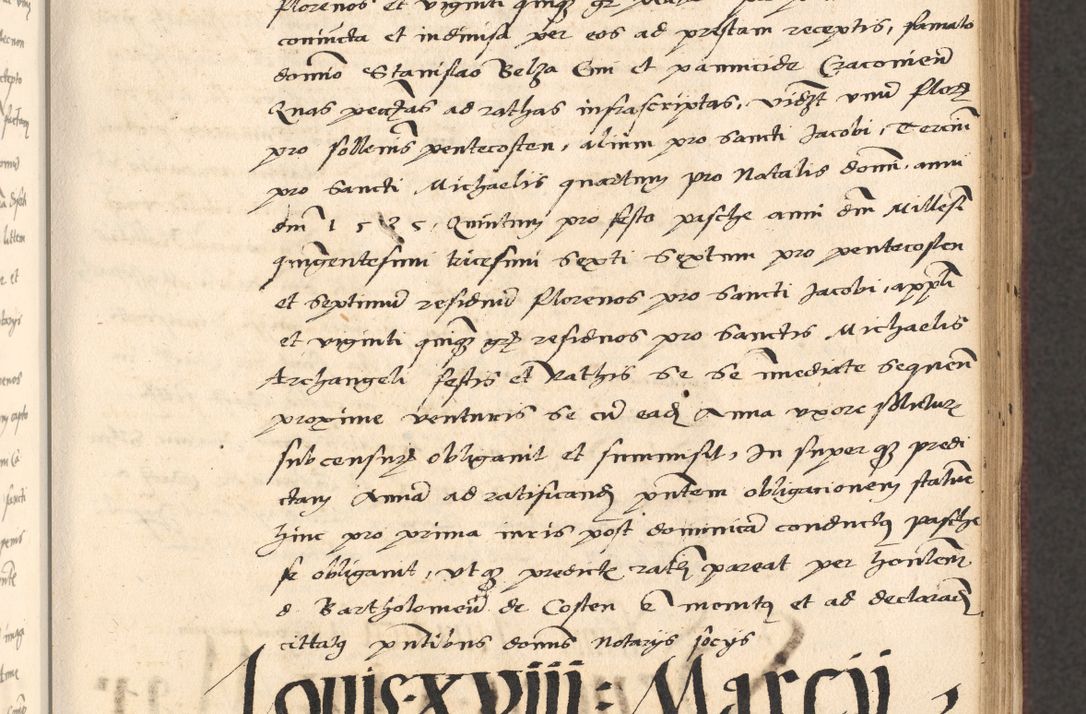 florenos et viginti quinqʒ gr
coniuncta et indivisa per eos ad prestam receptis, famato
domino Stanislao Belza Civi et pannicide Cracovien̄
Quas pecc̄as ad rathas infrascriptas, vidʒt unū floren̄
pro sollenis pentecosten, alium pro Sancti Jacobi, Terciū
pro Sancti Michaelis quartum pro Natalis domī, anni
dm̄ 1535, Quintum pro festo pasche anni dm̄ Millesī
quingentesimi tricesimi Sexti Sextum pro pentecosten
et Septimū residuū florenos pro Sancti Jacobi, appl̄i
et viginti quinqʒ gr̄ residuos pro Sanctis Michaelis
Archangeli festis et Rathis se se īmediate Sequen̄
proxime venturis se cū eadē Anna uxore
sub censuris obligavit et summisit, In super qʒ predi
ctam Annā ad ratificandū pn̄tem obligacionem statuere
hinc pro prima iuris post dominicā conductus pasche
se obligavit, utqʒ predicte rathe pareat per honlem̄
d Bartholomeū de Costen e monitus et ad declarand
cittatus pn̄tibus domīs Notariis sociis
Jouis·xviii: Marcii